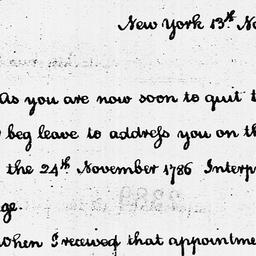 New York 13th No
As you are now soon to quit t
beg leave to address you on th
the 24th November 1786 Interp
ge.
When I received that appointme